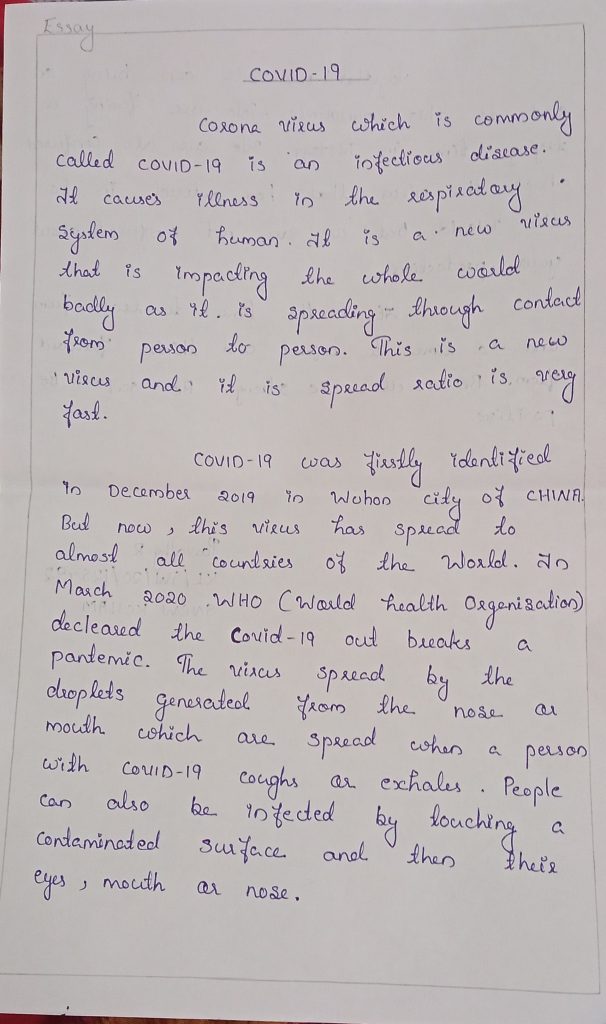 Essay
COVID-19
Corona virus which is commonly
called COVID-19 is an infectious disease.
It causes illness in the respiratory
System of human. It is a new virus
that is impacting the whole world
badly as it is spreading through contact
from person to person. This is a new
virus and it is spread ratio is very
fast.
COVID-19 was firstly identified
in December 2019 in Wuhan city of CHINA.
But now, this virus has spread to
almost all countries of the World. In
March 2020 WHO (World health Organisation)
decleared the Covid-19 out breaks a
pantemic. The virus spread by the
droplets generated from the nose or
mouth which are spread when a person
with COVID-19 coughs or exhales. People
can also be infected by touching a
contaminated surface and then their
eyes, mouth or nose.